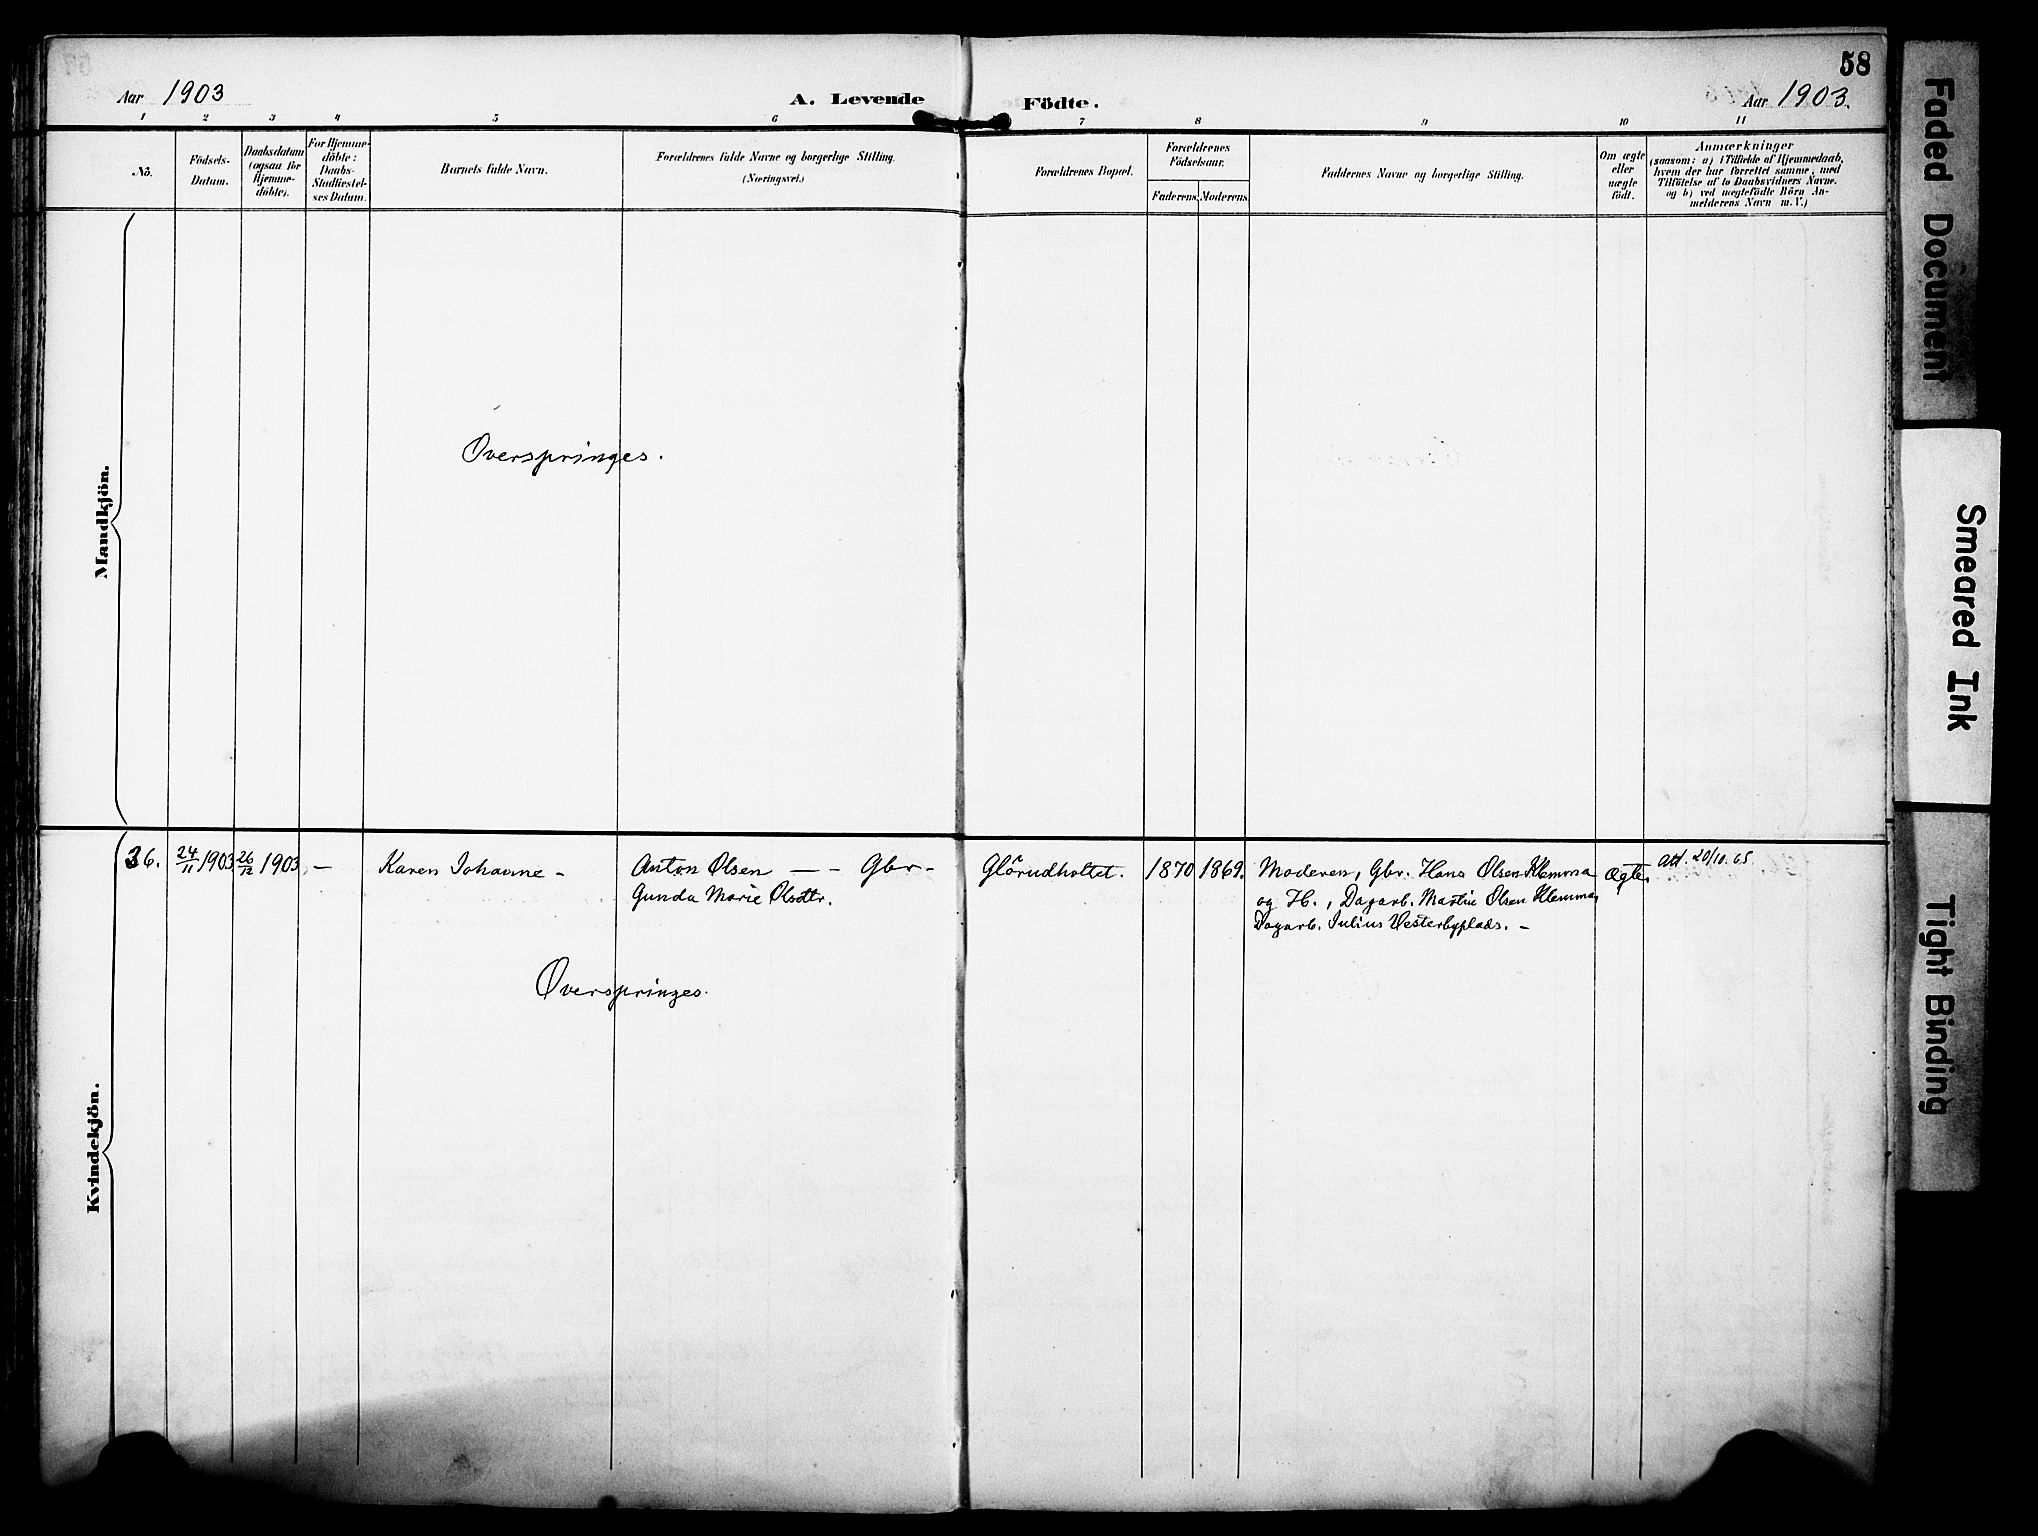 58
Aar 1903
A. Levende
Födte.
Aar 1903.
1 2 3 4 5 6 7 8 9 10 11
No.
Födsels-
Datum.
Daabsdatum
(ogsaa for
Hjemme-
döbte).
For Hjemme-
döbte:
Daabs-
Stadfæstel-
ses Datum.
Barnets fulde Navn.
Forældrenes fulde Navne og borgerlige Stilling.
(Næringsvei.)
Forældrenes Bopæl.
Forældrenes
Födselsaar.
Faderens.
Moderens.
Faddernes Navne og borgerlige Stilling.
Om ægte
eller
uægte
födt.
Anmærkninger
(saasom: a) i Tilfælde af Hjemmedaab,
hvem der har forrettet samme, med
Tilföielse af to Daabsvidners Navne.
og b) ved uægtefödte Börn An-
melderens Navn m. V.)
Mandkjön.
Overspringes.
Kvindekjön.
26. 24/11 1903 26/12 1903. — Karen Johanne - Anton Olsen — - Gbr - Glörudholtet. 1870 1869. Moderen, Gbr. Hans Olsen Klemma Ægte. att. 20/10.65.
Gunda Marie Olsdtr. og H., Dagarb. Martin Olsen Klemma,
Dagarb. Julius Vesterbyplads. -
Overspringes.
Faded Document
Smeared Ink
Tight Binding